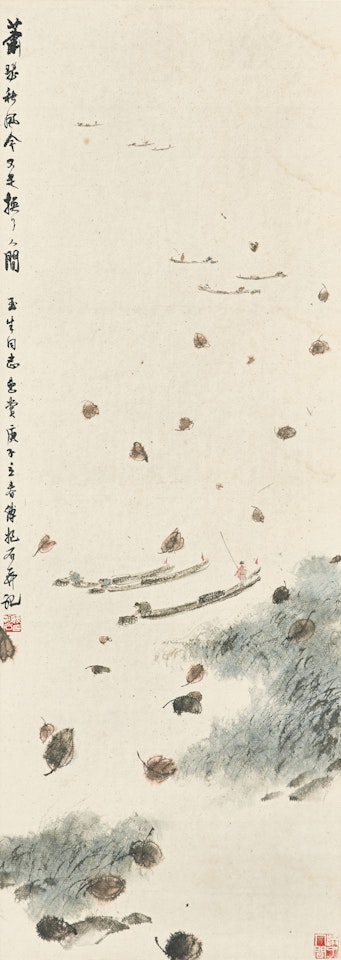 蕭瑟秋風今又是換了人間 玉生同志惠賞庚子立春傅抱石并記